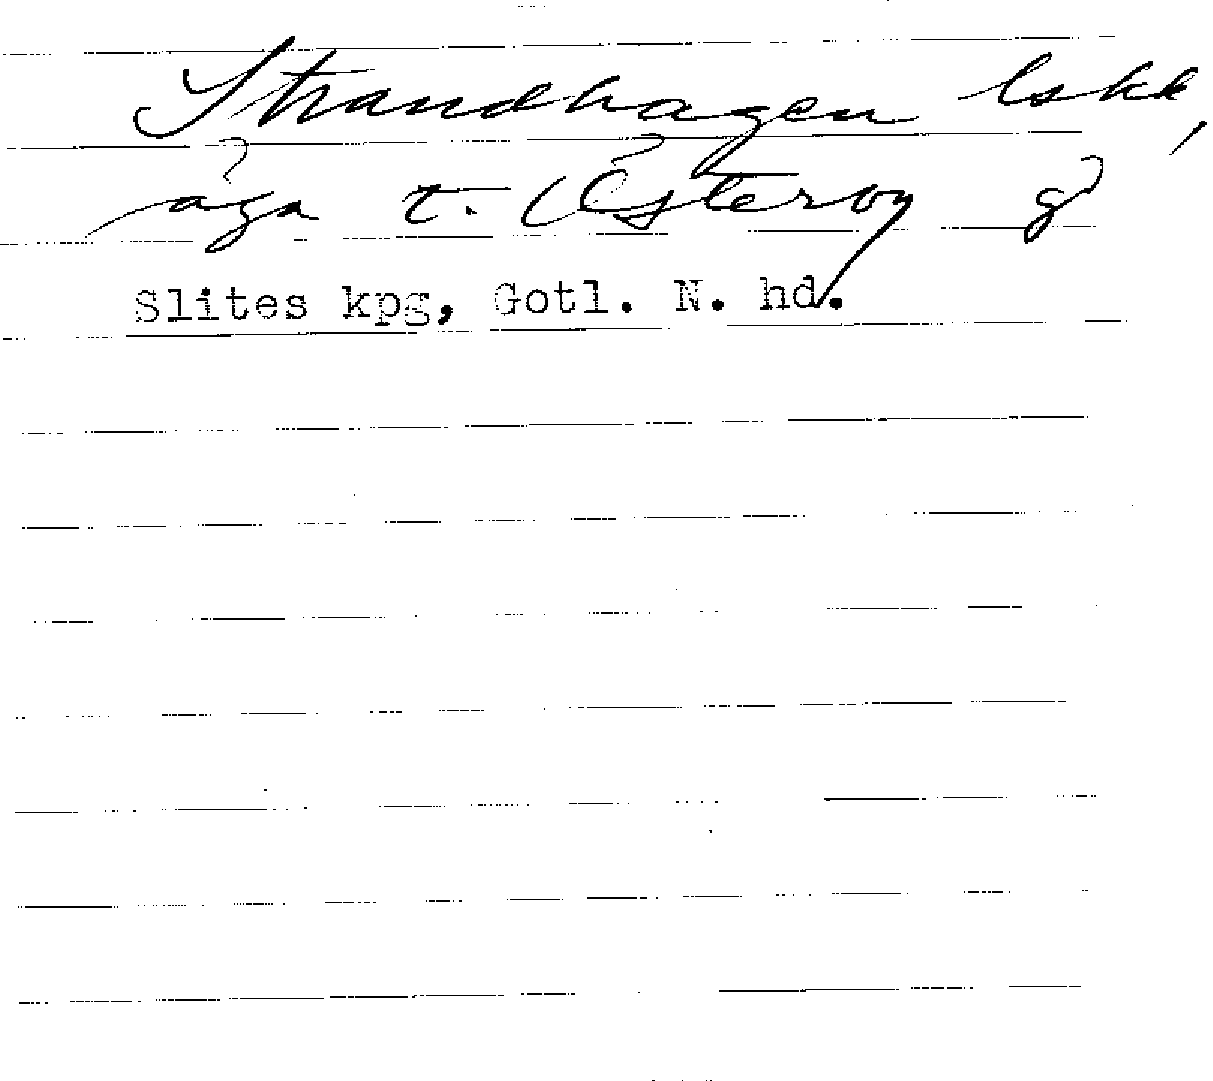 Strandhagen lskk,
äga t. Österby g
Slites kpg, Gotl. N. hd.